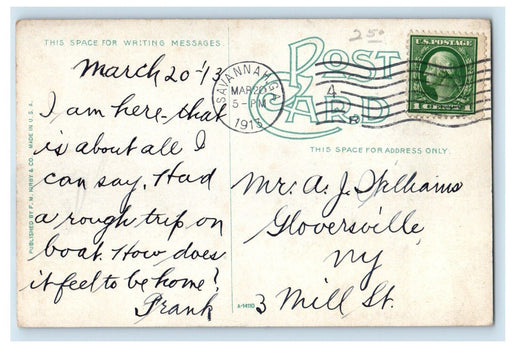 THIS SPACE FOR WRITING MESSAGES
March 20-'13
I am here- that
is about all I
can say. Had
a rough trip on
boat. How does
it feel to be home?
Frank
PUBLISHED BY F. M. KIRBY & CO. MADE IN U.S.A.
SAVANNAH, GA.
MAR 20
5-PM
1913
POST
CARD
250
4
U.S. POSTAGE
THIS SPACE FOR ADDRESS ONLY.
Mr. A. J. Williams
Gloversville,
Ny
3 Mill St.
A-14110